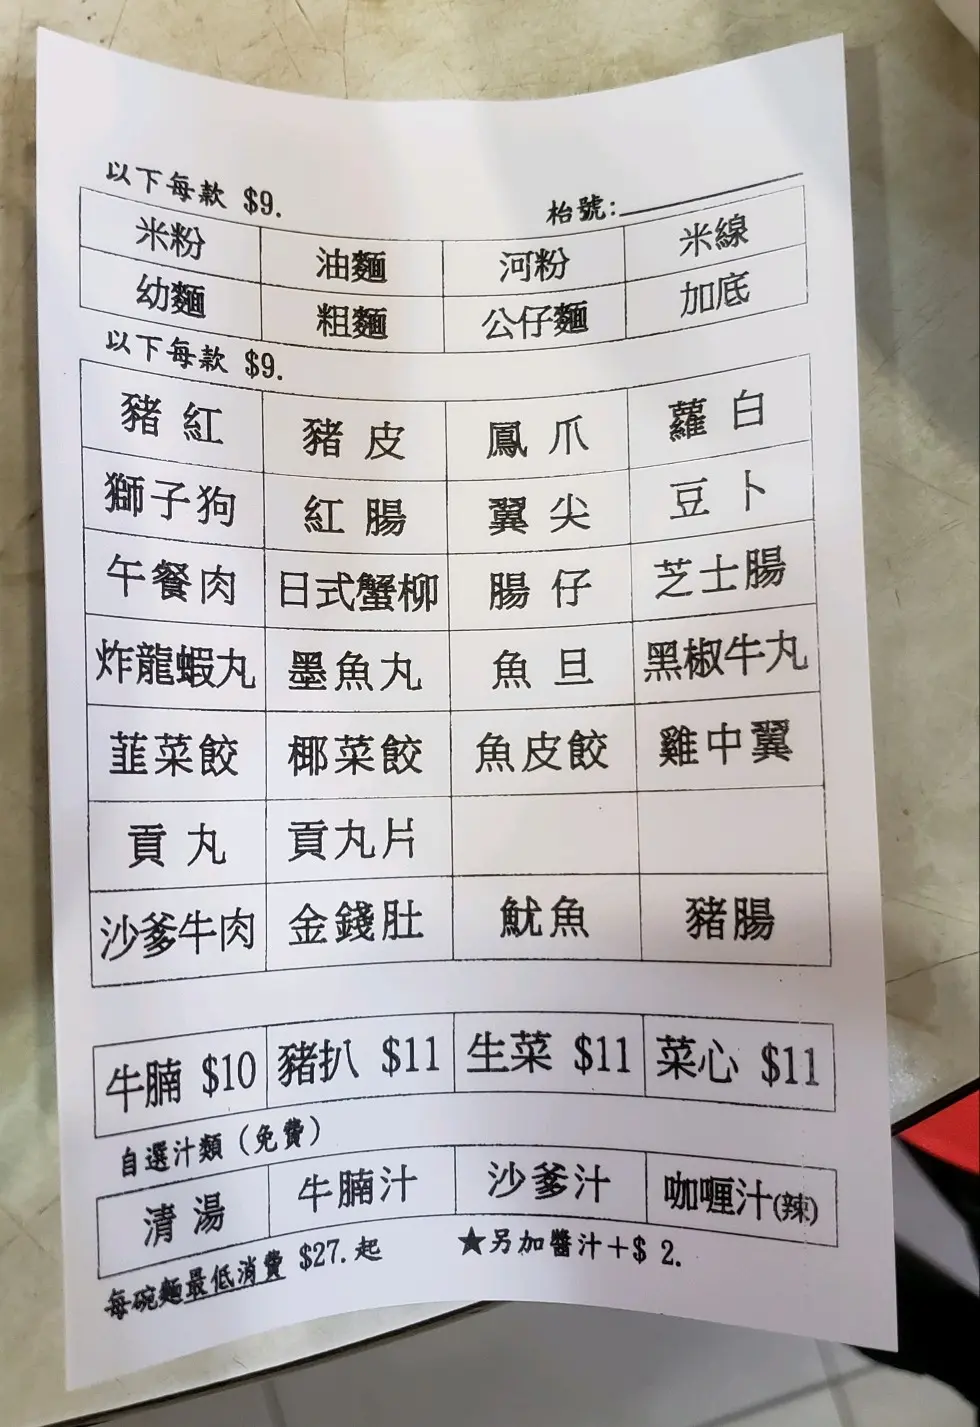 以下每款 $9.
枱號:
米粉 油麵 河粉 米線
幼麵 粗麵 公仔麵 加底
以下每款 $9.
豬紅 豬皮 鳳爪 蘿白
獅子狗 紅腸 翼尖 豆卜
午餐肉 日式蟹柳 腸仔 芝士腸
炸龍蝦丸 墨魚丸 魚旦 黑椒牛丸
韮菜餃 椰菜餃 魚皮餃 雞中翼
貢丸 貢丸片
沙爹牛肉 金錢肚 魷魚 豬腸
牛腩 $10 豬扒 $11 生菜 $11 菜心 $11
自選汁類(免費)
清湯 牛腩汁 沙爹汁 咖喱汁(辣)
每碗麵最低消費 $27.起 ★另加醬汁+$ 2.